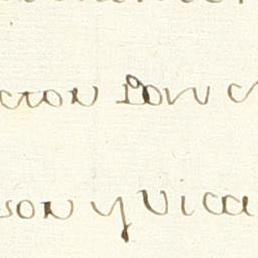 cion Don
son y Vica